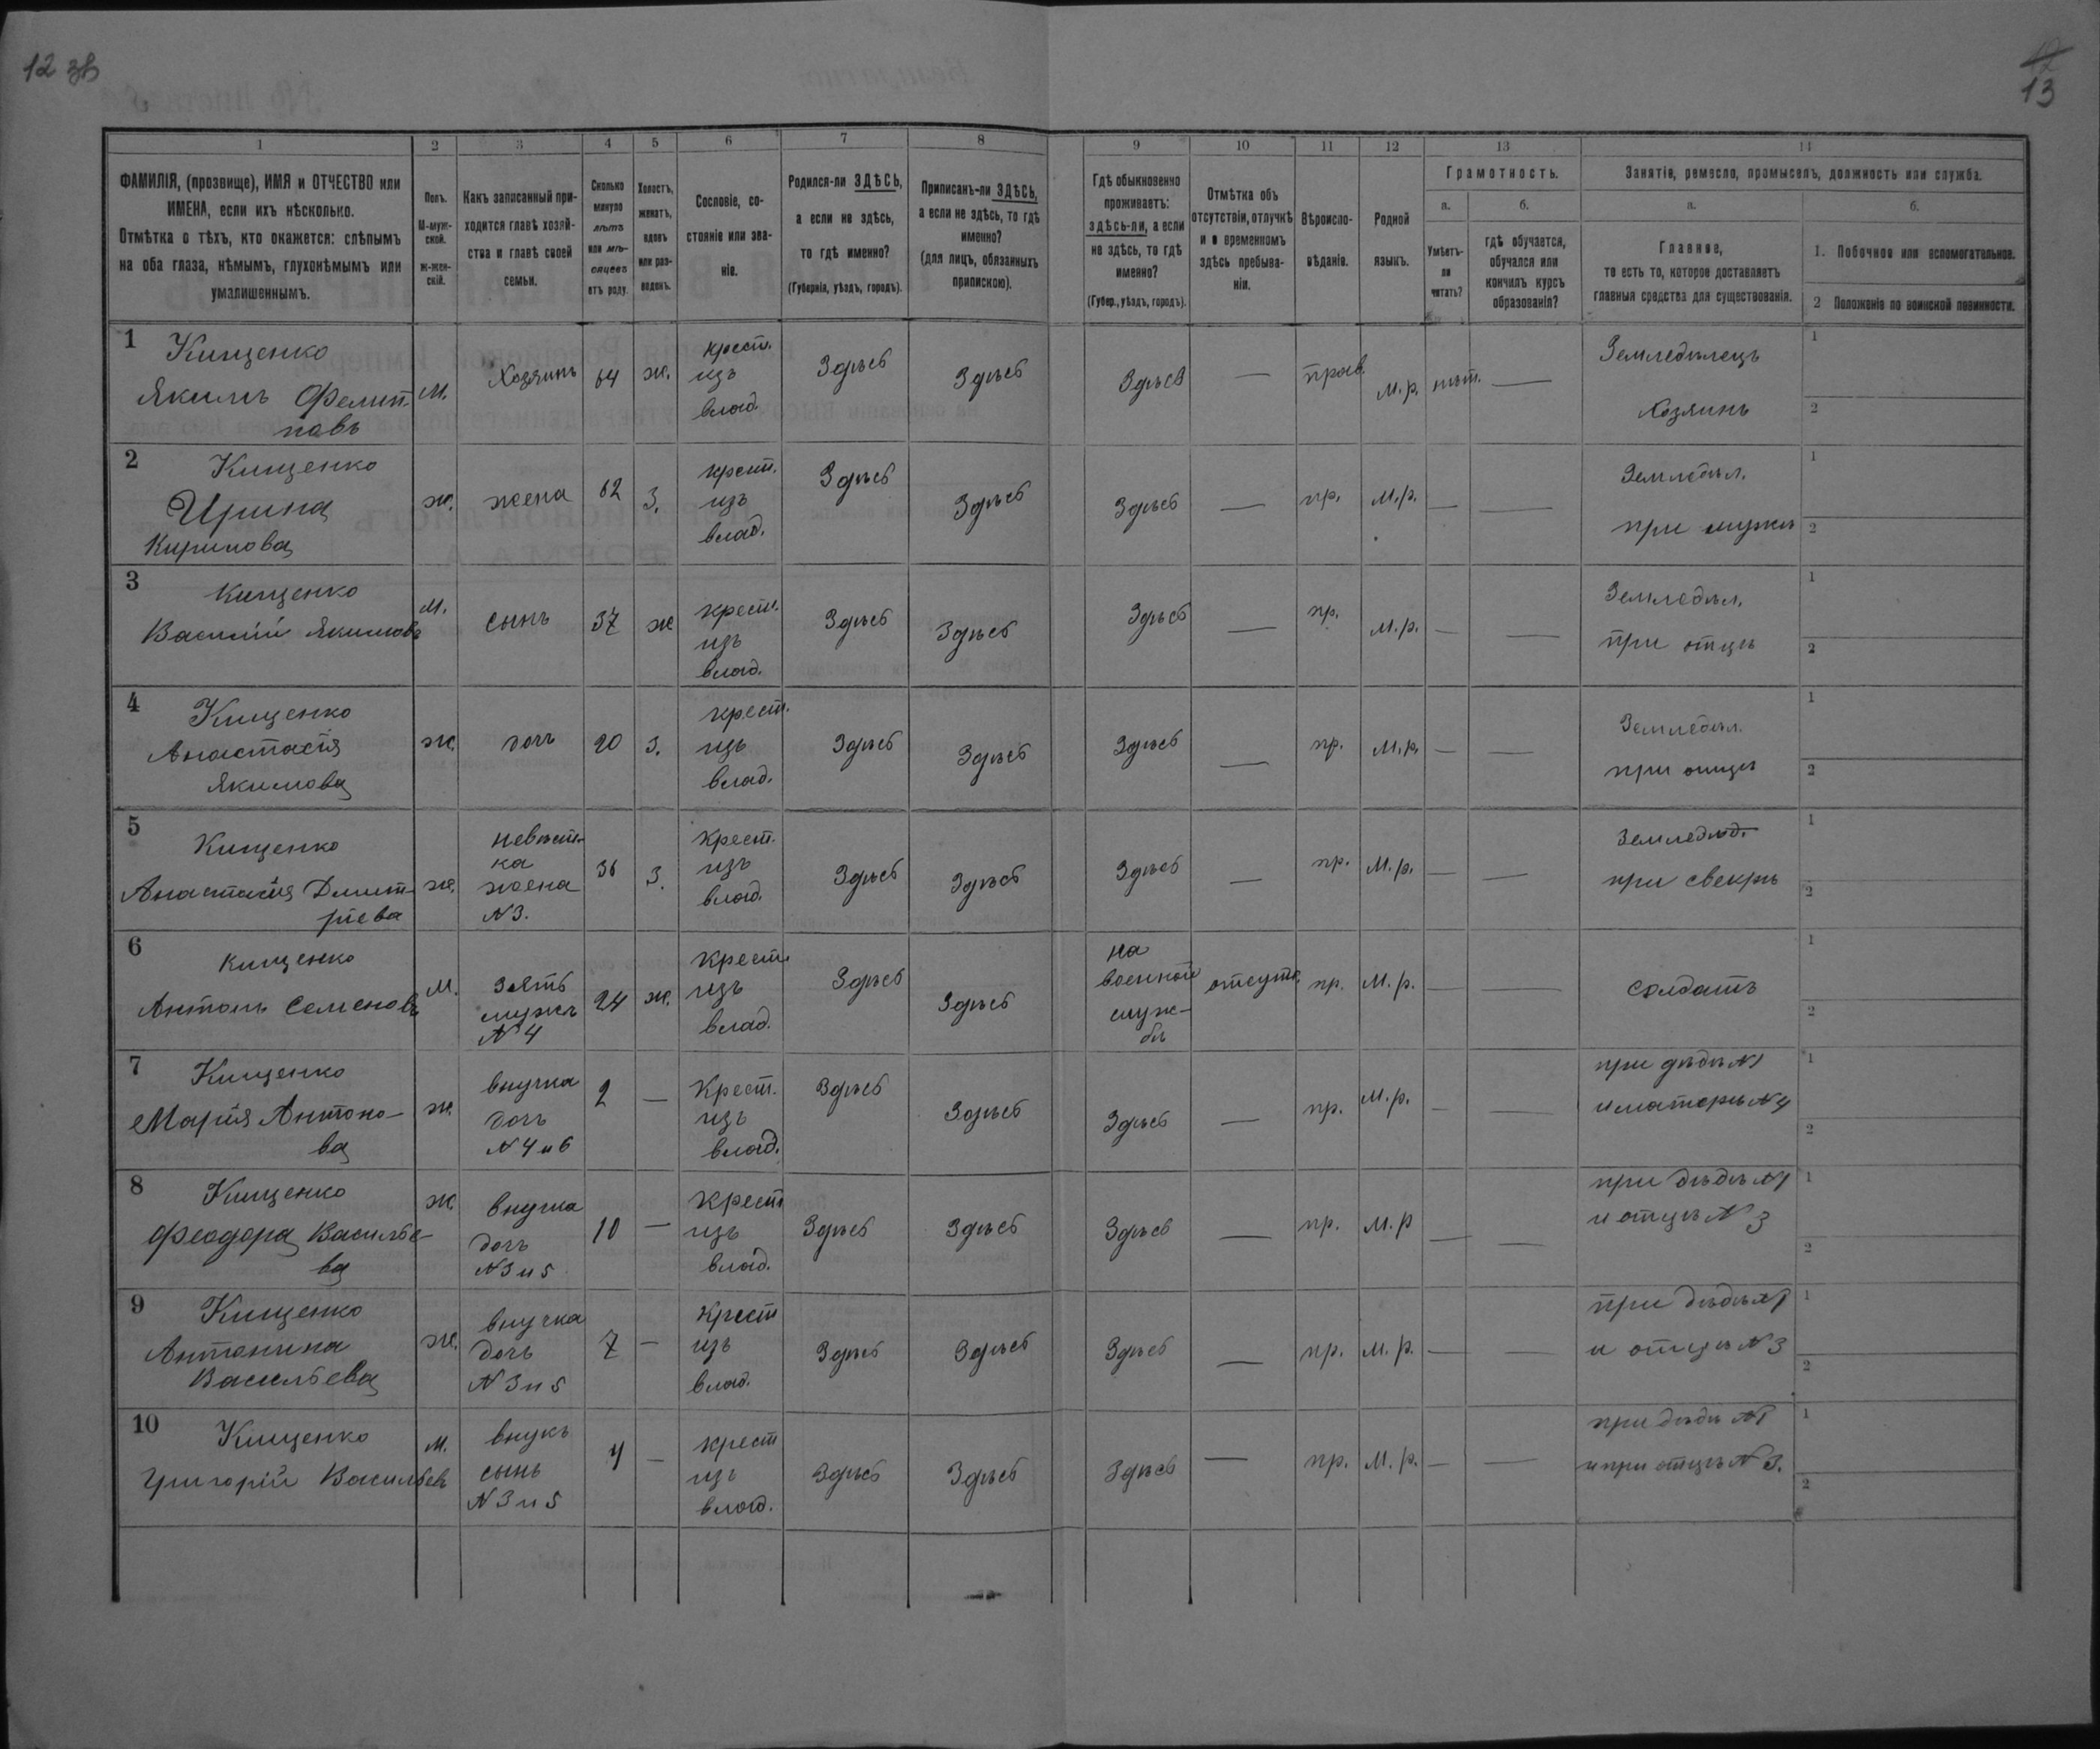 12 зв
12
13
1 2 3 4 5 6 7 8 9 10 11 12 13 14
ФАМИЛІЯ, (прозвище), ИМЯ и ОТЧЕСТВО или
ИМЕНА, если ихъ нѣсколько.
Отмѣтка о тѣхъ, кто окажется: слѣпымъ
на оба глаза, нѣмымъ, глухонѣмымъ или
умалишеннымъ.
Полъ.
М-муж-
ской.
ж-жен-
скій.
Какъ записанный при-
ходится главѣ хозяй-
ства и главѣ своей
семьи.
Сколько
минуло
лѣтъ
или мѣ-
сяцевъ
отъ роду.
Холостъ,
женатъ,
вдовъ
или раз-
веденъ.
Сословіе, со-
стояніе или зва-
ніе.
Родился-ли ЗДѢСЬ,
а если не здѣсь,
то гдѣ именно?
(Губернія, уѣздъ, городъ).
Приписанъ-ли ЗДѢСЬ,
а если не здѣсь, то гдѣ
именно?
(для лицъ, обязанныхъ
припискою).
Гдѣ обыкновенно
проживаетъ:
здѣсь-ли, а если
не здѣсь, то гдѣ
именно?
(Губер., уѣздъ, городъ).
Отмѣтка объ
отсутствіи, отлучкѣ
и о временномъ
здѣсь пребыва-
ніи.
Вѣроиспо-
вѣданіе.
Родной
языкъ.
Грамотность.
а.
Умѣетъ-
ли
читать?
б.
гдѣ обучается,
обучался или
кончилъ курсъ
образованія?
Занятіе, ремесло, промыселъ, должность или служба.
а.
Главное,
то есть то, которое доставляетъ
главныя средства для существованія.
б.
1. Побочное или вспомогательное.
2 Положеніе по воинской повинности.
1 Кищенко
Якимъ Фелип-
повъ
М.
Хозяинъ
64
ж.
крест.
изъ
влад.
Здѣсь
Здѣсь
Здѣсь
—
прав.
М.р.
нѣт.
—
Земледѣлецъ
Хозяинъ
1
2
2 Кищенко
Ирина
Кирилова
ж.
жена
62
З.
крест.
изъ
влад.
Здѣсь
Здѣсь
Здѣсь
—
пр.
М.р.
—
—
Земледѣл.
при мужѣ
1
2
3 Кищенко
Василій Якимовъ
М.
сынъ
37
ж
крест.
изъ
влад.
Здѣсь
Здѣсь
Здѣсь
—
пр.
М.р.
—
—
Земледѣл.
при отцѣ
1
2
4 Кищенко
Анастасія
Якимова
ж.
дочь
20
З.
крест.
изъ
влад.
Здѣсь
Здѣсь
Здѣсь
—
пр.
М.р.
—
—
Земледѣл.
при отцѣ
1
2
5 Кищенко
Анастасія Дмит-
ріева
ж.
невѣст-
ка
жена
N 3.
36
З.
крест.
изъ
влад.
Здѣсь
Здѣсь
Здѣсь
—
пр.
М.р.
—
—
при свекрѣ
1
2
6 Кищенко
Антонъ Семеновъ
М.
зять
мужъ
N 4
24
ж.
Крест.
изъ
влад.
Здѣсь
Здѣсь
на
военной
служ-
бѣ
отсутс.
пр.
М.р.
—
—
солдатъ
1
2
7 Кищенко
Марія Антоно-
ва
ж.
внучка
дочь
N 4 и 6
2
—
Крест.
изъ
влад.
Здѣсь
Здѣсь
Здѣсь
—
пр.
М.р.
—
—
при дѣдѣ N1
и матери N 4
1
2
8 Кищенко
Феодора Василье-
ва
ж.
внучка
дочь
N 3 и 5
10
—
Крест
изъ
влад.
Здѣсь
Здѣсь
Здѣсь
—
пр.
М.р
—
—
при дѣдѣ N1
и отцѣ N 3
1
2
9 Кищенко
Антонина
Васильева
ж.
внучка
дочь
N 3 и 5
7
—
Крест
изъ
влад.
Здѣсь
Здѣсь
Здѣсь
—
пр.
М.р.
—
—
при дѣдѣ N1
и отцѣ N 3
1
2
10 Кищенко
Григорій Васильевъ
М.
внукъ
сынъ
N 3 и 5
4
—
крест
изъ
влад.
Здѣсь
Здѣсь
Здѣсь
—
пр.
М.р.
—
—
при дѣдѣ N1
и при отцѣ N 3.
1
2